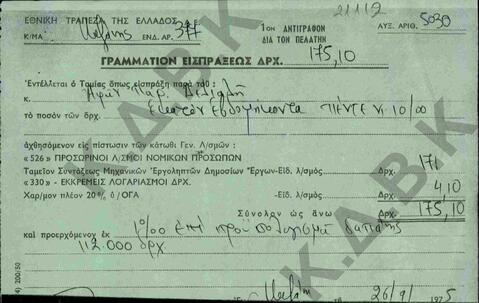 21112
ΕΘΝΙΚΗ ΤΡΑΠΕΖΑ ΤΗΣ ΕΛΛΑΔΟΣ
Κ/ΜΑ Κοζάνης ΕΝΔ. ΑΡ. 377
1ον ΑΝΤΙΓΡΑΦΟΝ
ΔΙΑ ΤΟΝ ΠΕΛΑΤΗΝ
ΑΥΞ. ΑΡΙΘ. 5030
ΓΡΑΜΜΑΤΙΟΝ ΕΙΣΠΡΑΞΕΩΣ ΔΡΧ. 175,10
Ἐντέλλεται ὁ Ταμίας ὅπως εἰσπράξῃ παρὰ τοῦ
κ.
τὸ ποσὸν τῶν δρχ. Ἑκατὸν ἑβδομήκοντα ΠΕΝΤΕ κ 10/00
ἀχθησόμενον εἰς πίστωσιν τῶν κάτωθι Γεν. Λ/σμῶν :
«526» ΠΡΟΣΩΡΙΝΟΙ Λ/ΣΜΟΙ ΝΟΜΙΚΩΝ ΠΡΟΣΩΠΩΝ
Ταμεῖον Συντάξεως Μηχανικῶν Ἐργοληπτῶν Δημοσίων Ἔργων-Εἰδ. λ/σμός Δρχ. 171
«330» - ΕΚΚΡΕΜΕΙΣ ΛΟΓΑΡΙΑΣΜΟΙ ΔΡΧ.
Χαρ/μον πλέον 20% ὁ/ΟΓΑ -Εἰδ. λ/σμός Δρχ. 4,10
Σύνολον ὡς ἄνω Δρχ. 175,10
καὶ προερχόμενον ἐκ ἐπὶ προϋπολογισμῷ δαπάνης
112.000 δρχ
200/50
Κοζάνη 26/9/1975
Κ.Δ.Β.Κ